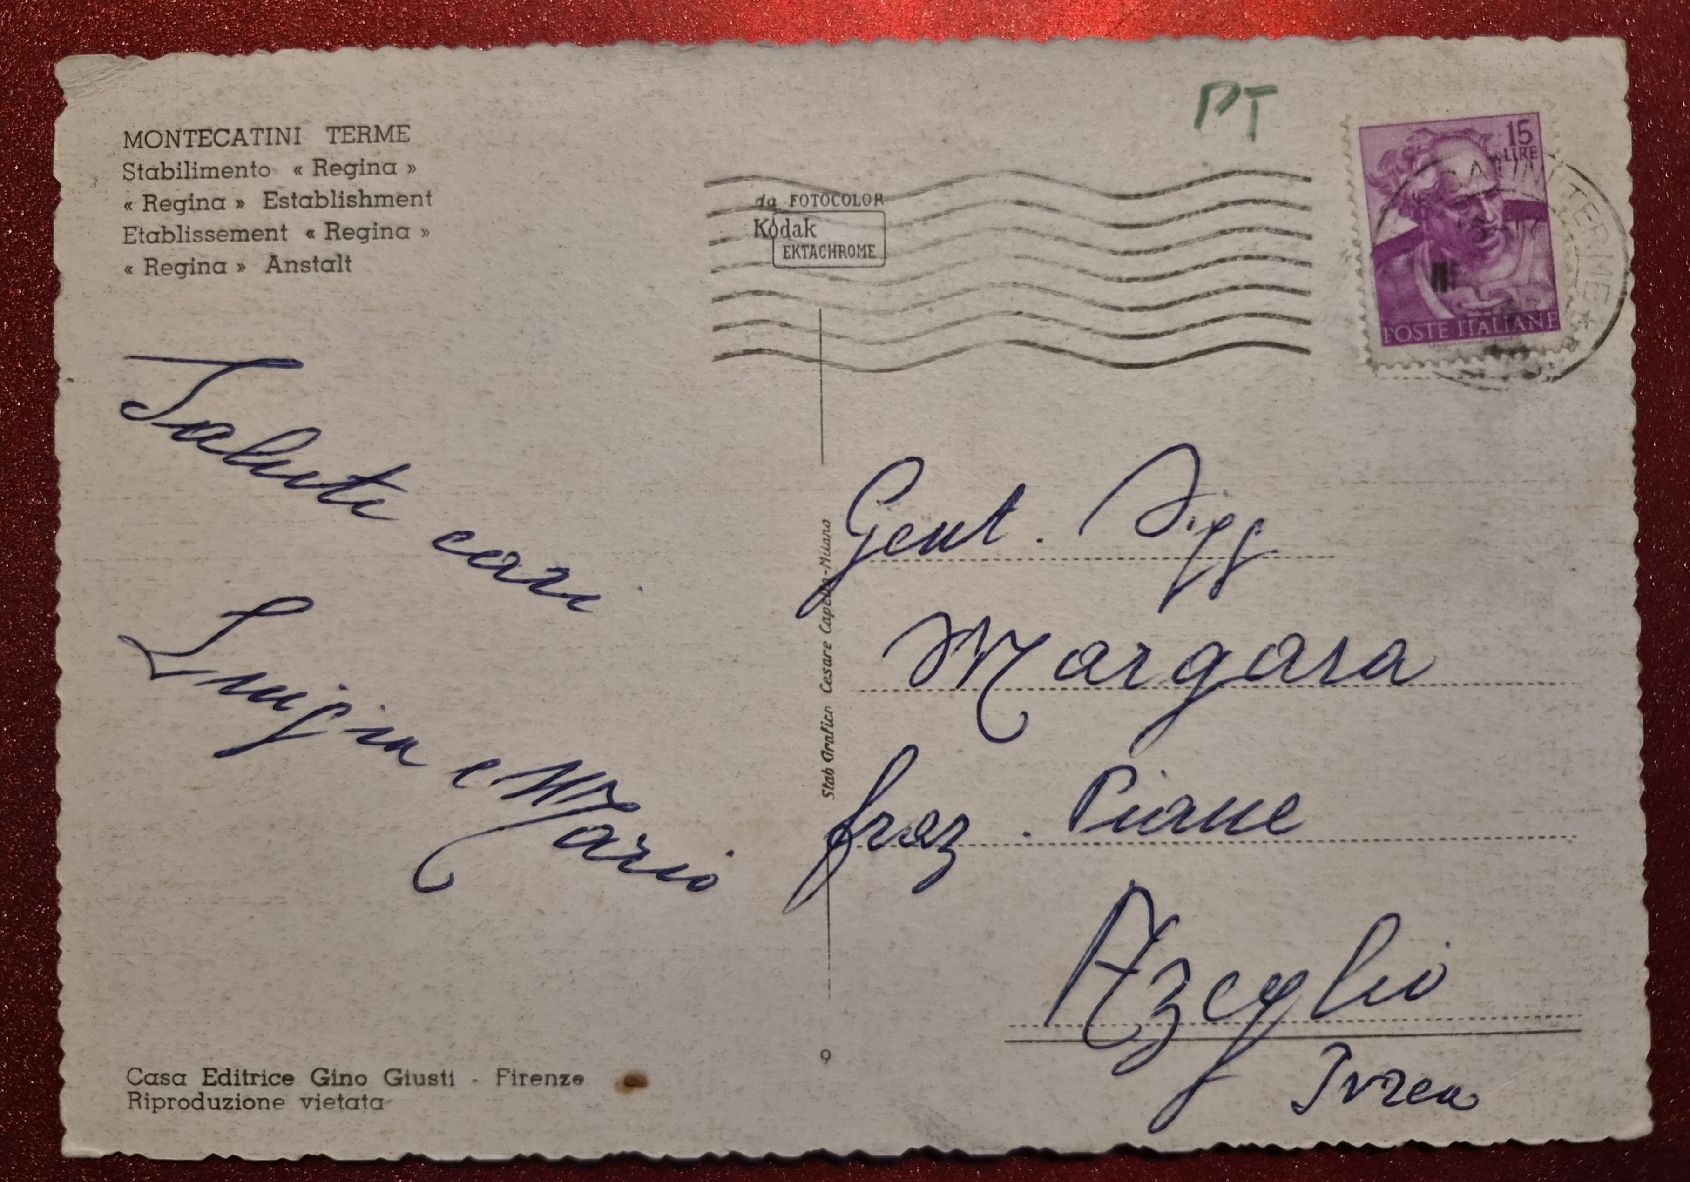 MONTECATINI TERME
Stabilimento « Regina »
« Regina » Establishment
Etablissement « Regina »
« Regina » Anstalt
PT
da FOTOCOLOR
Kodak
EKTACHROME
15
LIRE
POSTE ITALIANE
TERME
Saluti cari
Luigia e Mario
Stab Grafico Cesare Capello-Milano
Gent. Sigg
Margara
fraz. Piane
Azeglio
Ivrea
9
Casa Editrice Gino Giusti - Firenze
Riproduzione vietata